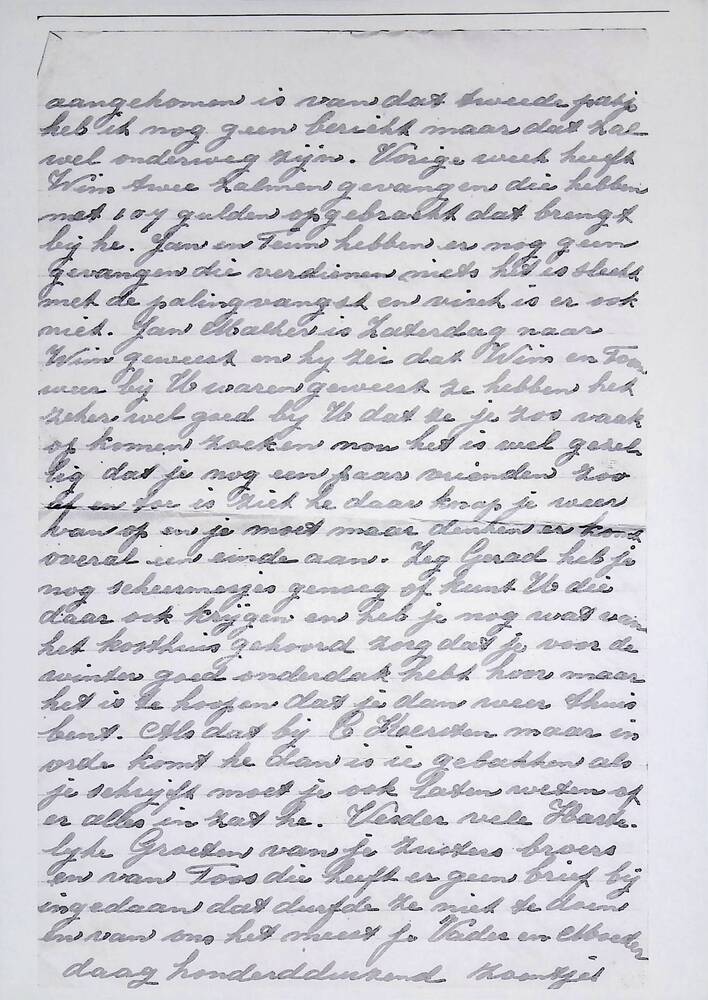 aangekomen is van dat tweede patj
heb ik nog geen bericht maar dat zal
wel onderweg zijn. Vorige week heeft
Wim twee zalmen gevangen die hebben
net 107 gulden opgebracht dat brengt
bij he. Jan en Teun hebben er nog geen
gevangen die verdienen niets het is slecht
met de palingvangst en visch is er ook
niet. Jan is Zaterdag naar
Wim geweest en hy zei dat Wim en Toon
weer bij U waren geweest ze hebben het
zeker wel goed bij U dat ze je zoo vaak
op komen zoeken nou het is wel gezel
lig dat je nog een paar vrienden zoo
af en toe is ziet he daar knap je weer
van op en je moet maar denken er komt
overal een einde aan. Zeg Gerad heb je
nog scheermesjes genoeg of kunt U die
daar ook krijgen en heb je nog wat van
het kosthuis gehoord zorg dat je voor de
winter goed onderdak hebt hoor maar
het is te hoopen dat je dan weer thuis
bent. Als dat bij C Koersten maar in
orde komt he dan is ie gebakken als
je schrijft moet je ook laten weten of
er alles in zat he. Verder vele Harte-
lijke Groeten van je zusters broers
en van Toos die heeft er geen brief bij
ingedaan dat durfde ze niet te doen
en van ons het meest je Vader en Moeder
daag honderdduizend zoentjes